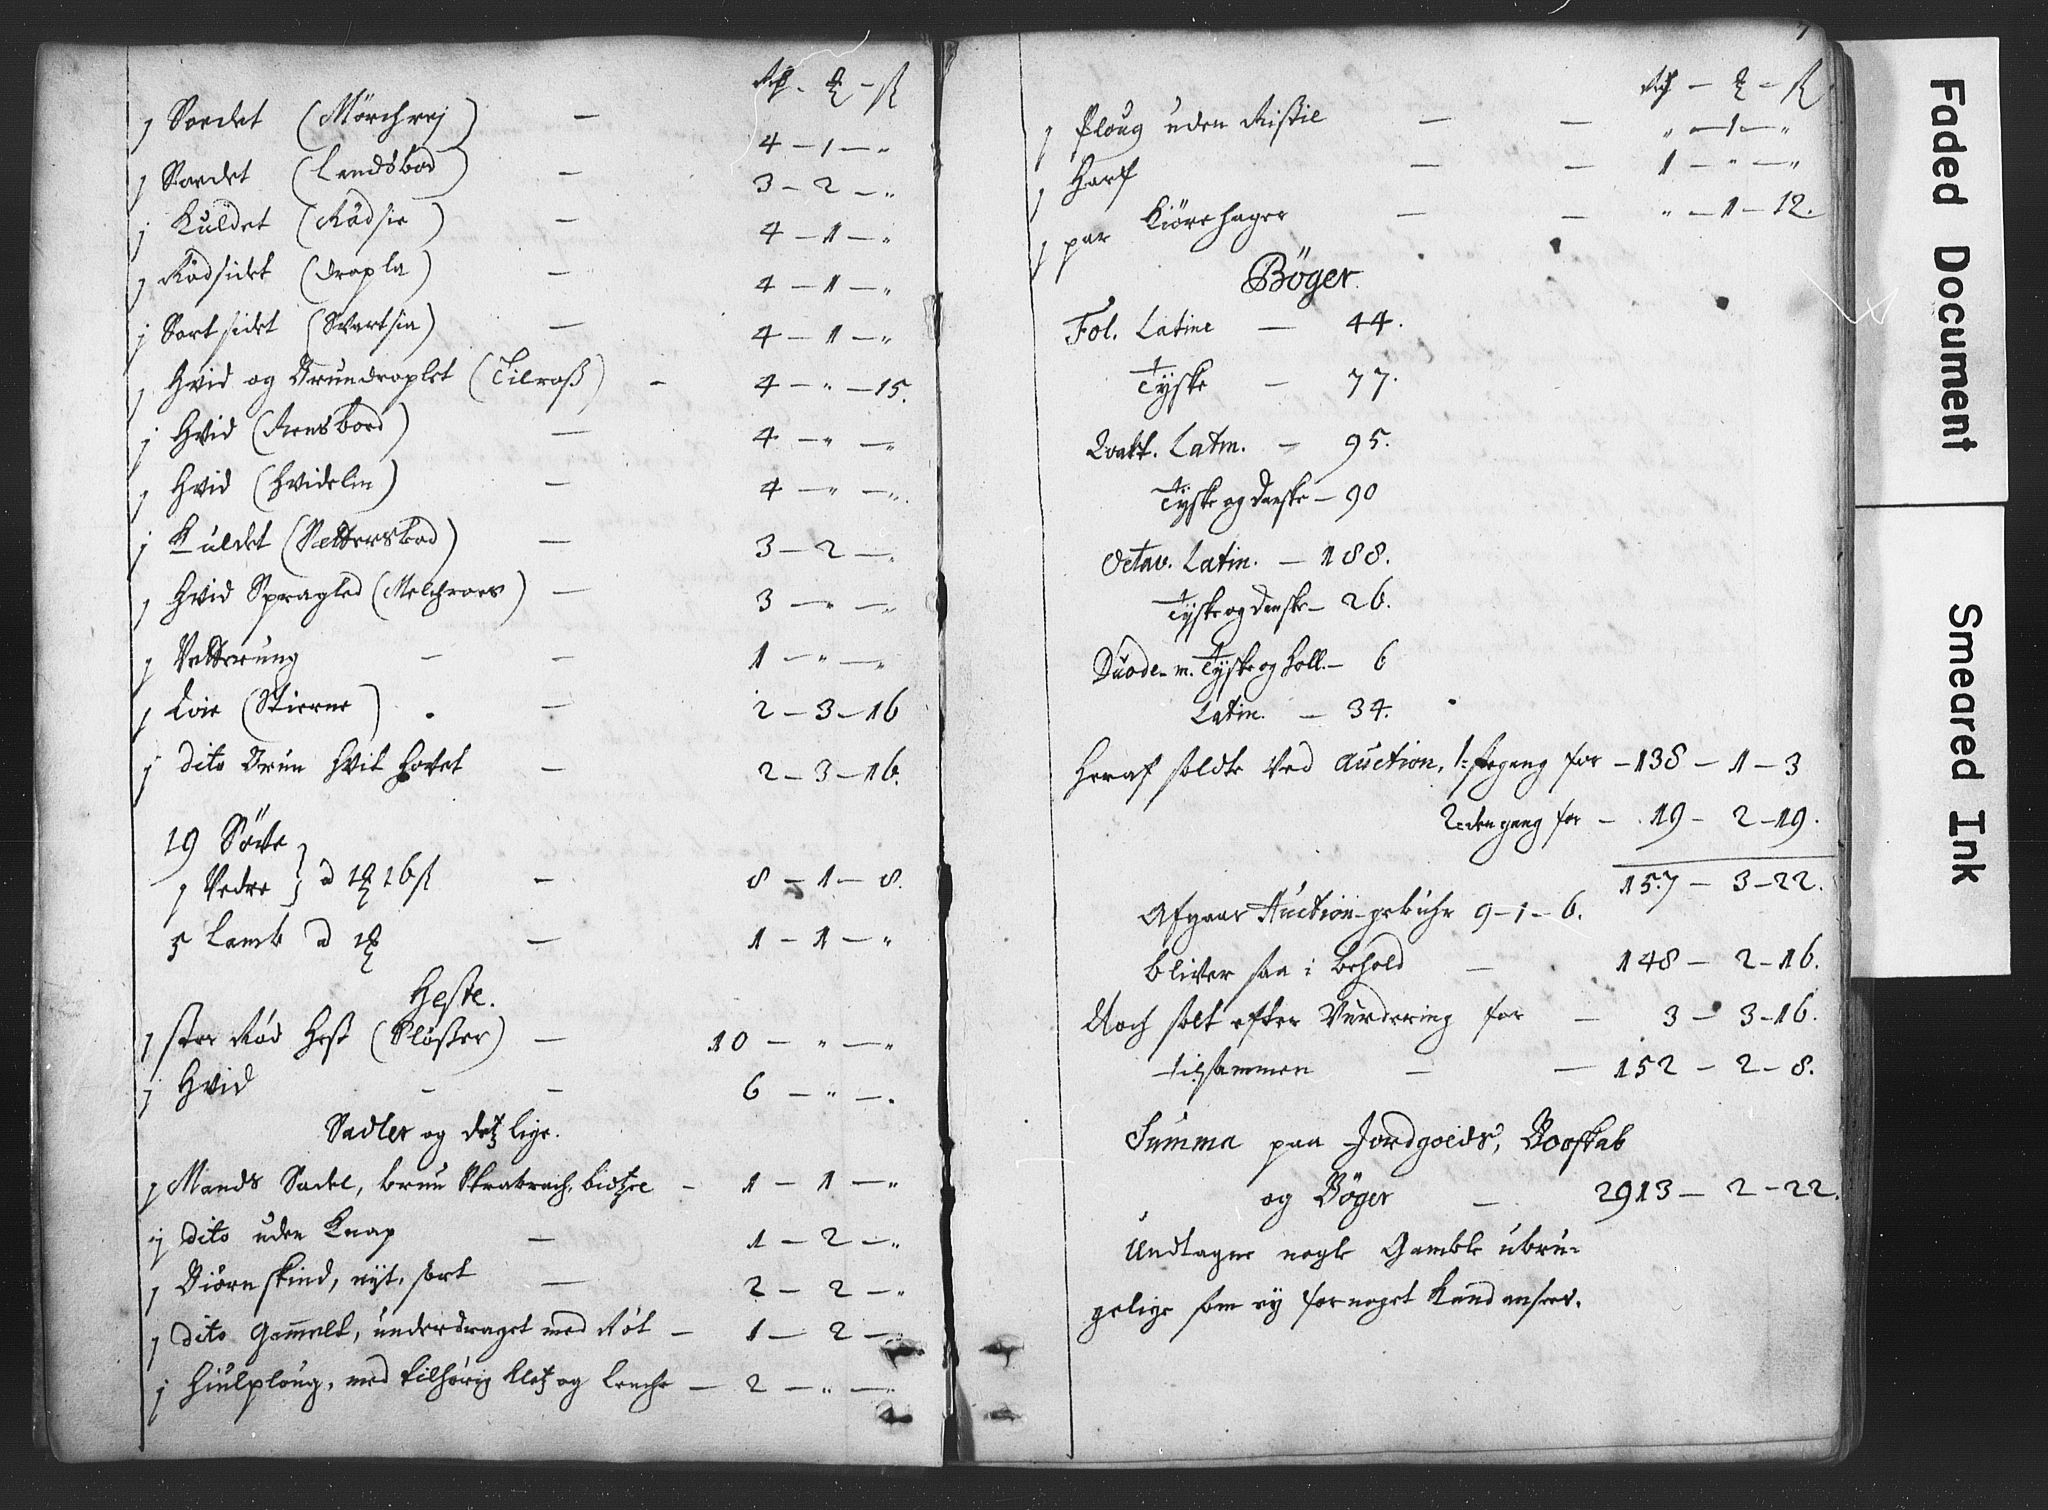 Rd. - ort - ß
j Soedet (Mörchrej) — 4 – 1 – "
j Soedet (Landsbod) — 3 – 2 – "
j Kuldet (Rödsie) — 4 – 1 – "
j Rödsidet (Dropla) — 4 – 1 – "
j Sortsidet (Svartsia) — 4 – 1 – "
j Hvid og Brundroplet (Tilroß) – 4 – " – 15.
j Hvid (Rensbod) — 4 – " – "
j Hvid (Hvidelin) — 4 – " – "
j Kuldet (Nettersbod) — 3 – 2 – "
j Hvid Spragled (Melchroes) — 3 – " – "
j Vetterung — — 1 – " – "
j Qvie (Stierne) — 2 – 3 – 16
j dito Brun Hvit Hovet — 2 – 3 – 16.
19 Söve
j Vedre } a 1 ort 16 ß — 8 – 1 – 8.
5 Lamb a 1 ort — 1 – 1 – "
Heste.
j stor Rød Hest (Bløster) — 10 – " – "
j Hvid — — 6 – " –
Sadler og detzlige.
j Mands Sadel, brun — 1 – 1 – "
ij dito uden Knap — 1 – 2 – "
j Biörnskind, nyt, sort — 2 – 2 – "
j dito Gammelt, underdraget med Röt — 1 – 2 –
j Hiulploug, med tilhörig og Lenche — 2 – " – "
7
Rd – ort – ß
j Ploug uden Ristil — — " – 1 – "
j Harf — — 1 – " – "
j par Kiörehager — — " – 1 – 12.
Böger.
Fol. Latine — 44.
Tyske — 77.
Qvart. Latin. — 95.
Tyske og Danske — 90
Octav. Latin. — 188.
Tyske og Danske — 26.
Duode-m. Tyske og Holl. — 6
Latin. — 34.
Heraf soldte ved Auction, 1:ste gang for — 138 – 1 – 3
2:den gang for — 19 – 2 – 19.
157 – 3 – 22.
Afgaar Auction-gebühr 9 – 1 – 6.
bliver saa i behold — 148 – 2 – 16.
Noch solt efter Vurdering for — 3 – 3 – 16.
tilsammen — — 152 – 2 – 8.
Summa paa Jordgoeds, Booskab
og Böger — 2913 – 2 – 22.
Undtagne nogle Gamble ubru-
gelige som ey for noget Kand ansees.
Faded Document
Smeared Ink